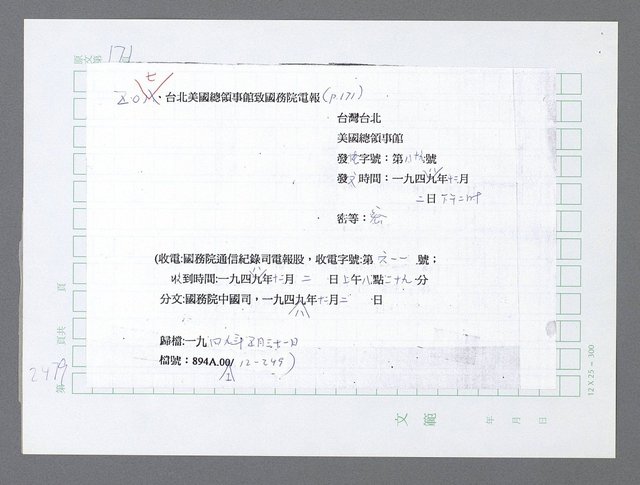 171
台北美國總領事館致國務院電報(P.171)
台灣台北
美國總領事館
發電字號：第八十九號
發文時間：一九四九年十二月
二日下午二時
密等：密
(收電:國務院通信紀錄司電報股，收電字號:第六一一號；
收到時間:一九四九年十二月二日上午八點二十九分
分文:國務院中國司，一九四九年十二月二日
歸檔:一九四九年
檔號：894A.00/12-249)
2479
第 頁共 頁
12 X 25 — 300
文範
年 月 日